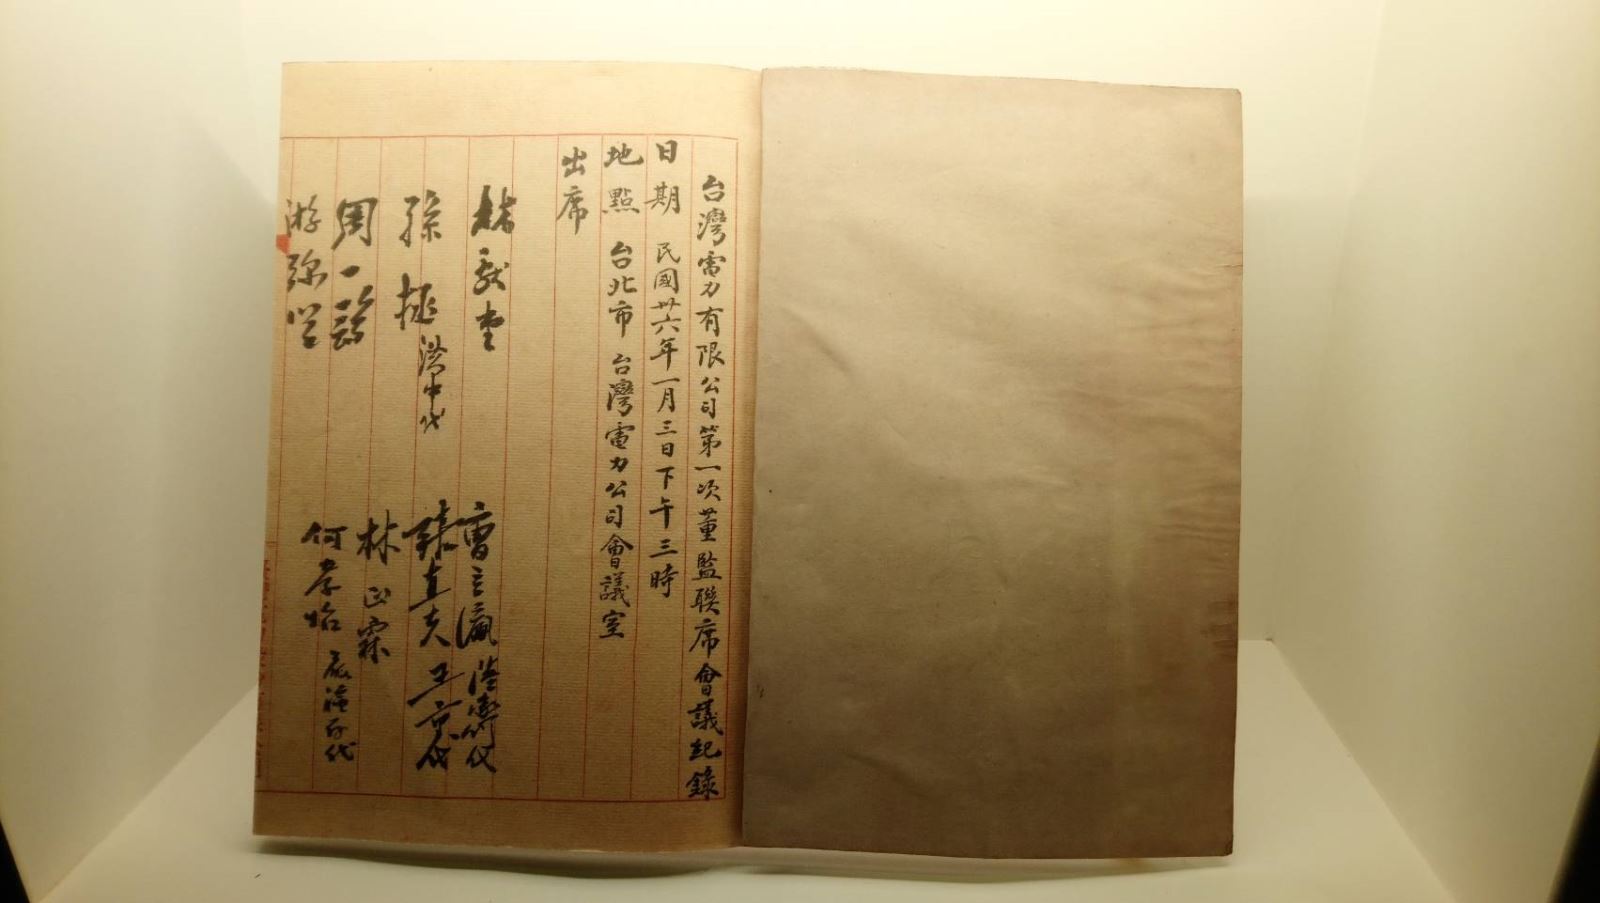 台灣電力有限公司第一次董監聯席會議紀錄
日期 民國卅六年一月三日下午三時
地點 台北市台灣電力公司會議室
出席
林献堂
孫拯 洪中代
周一鶚
游弥堅
曹立瀛 陸 代
陳直夫 王 代
林正霖
何孝怡 代